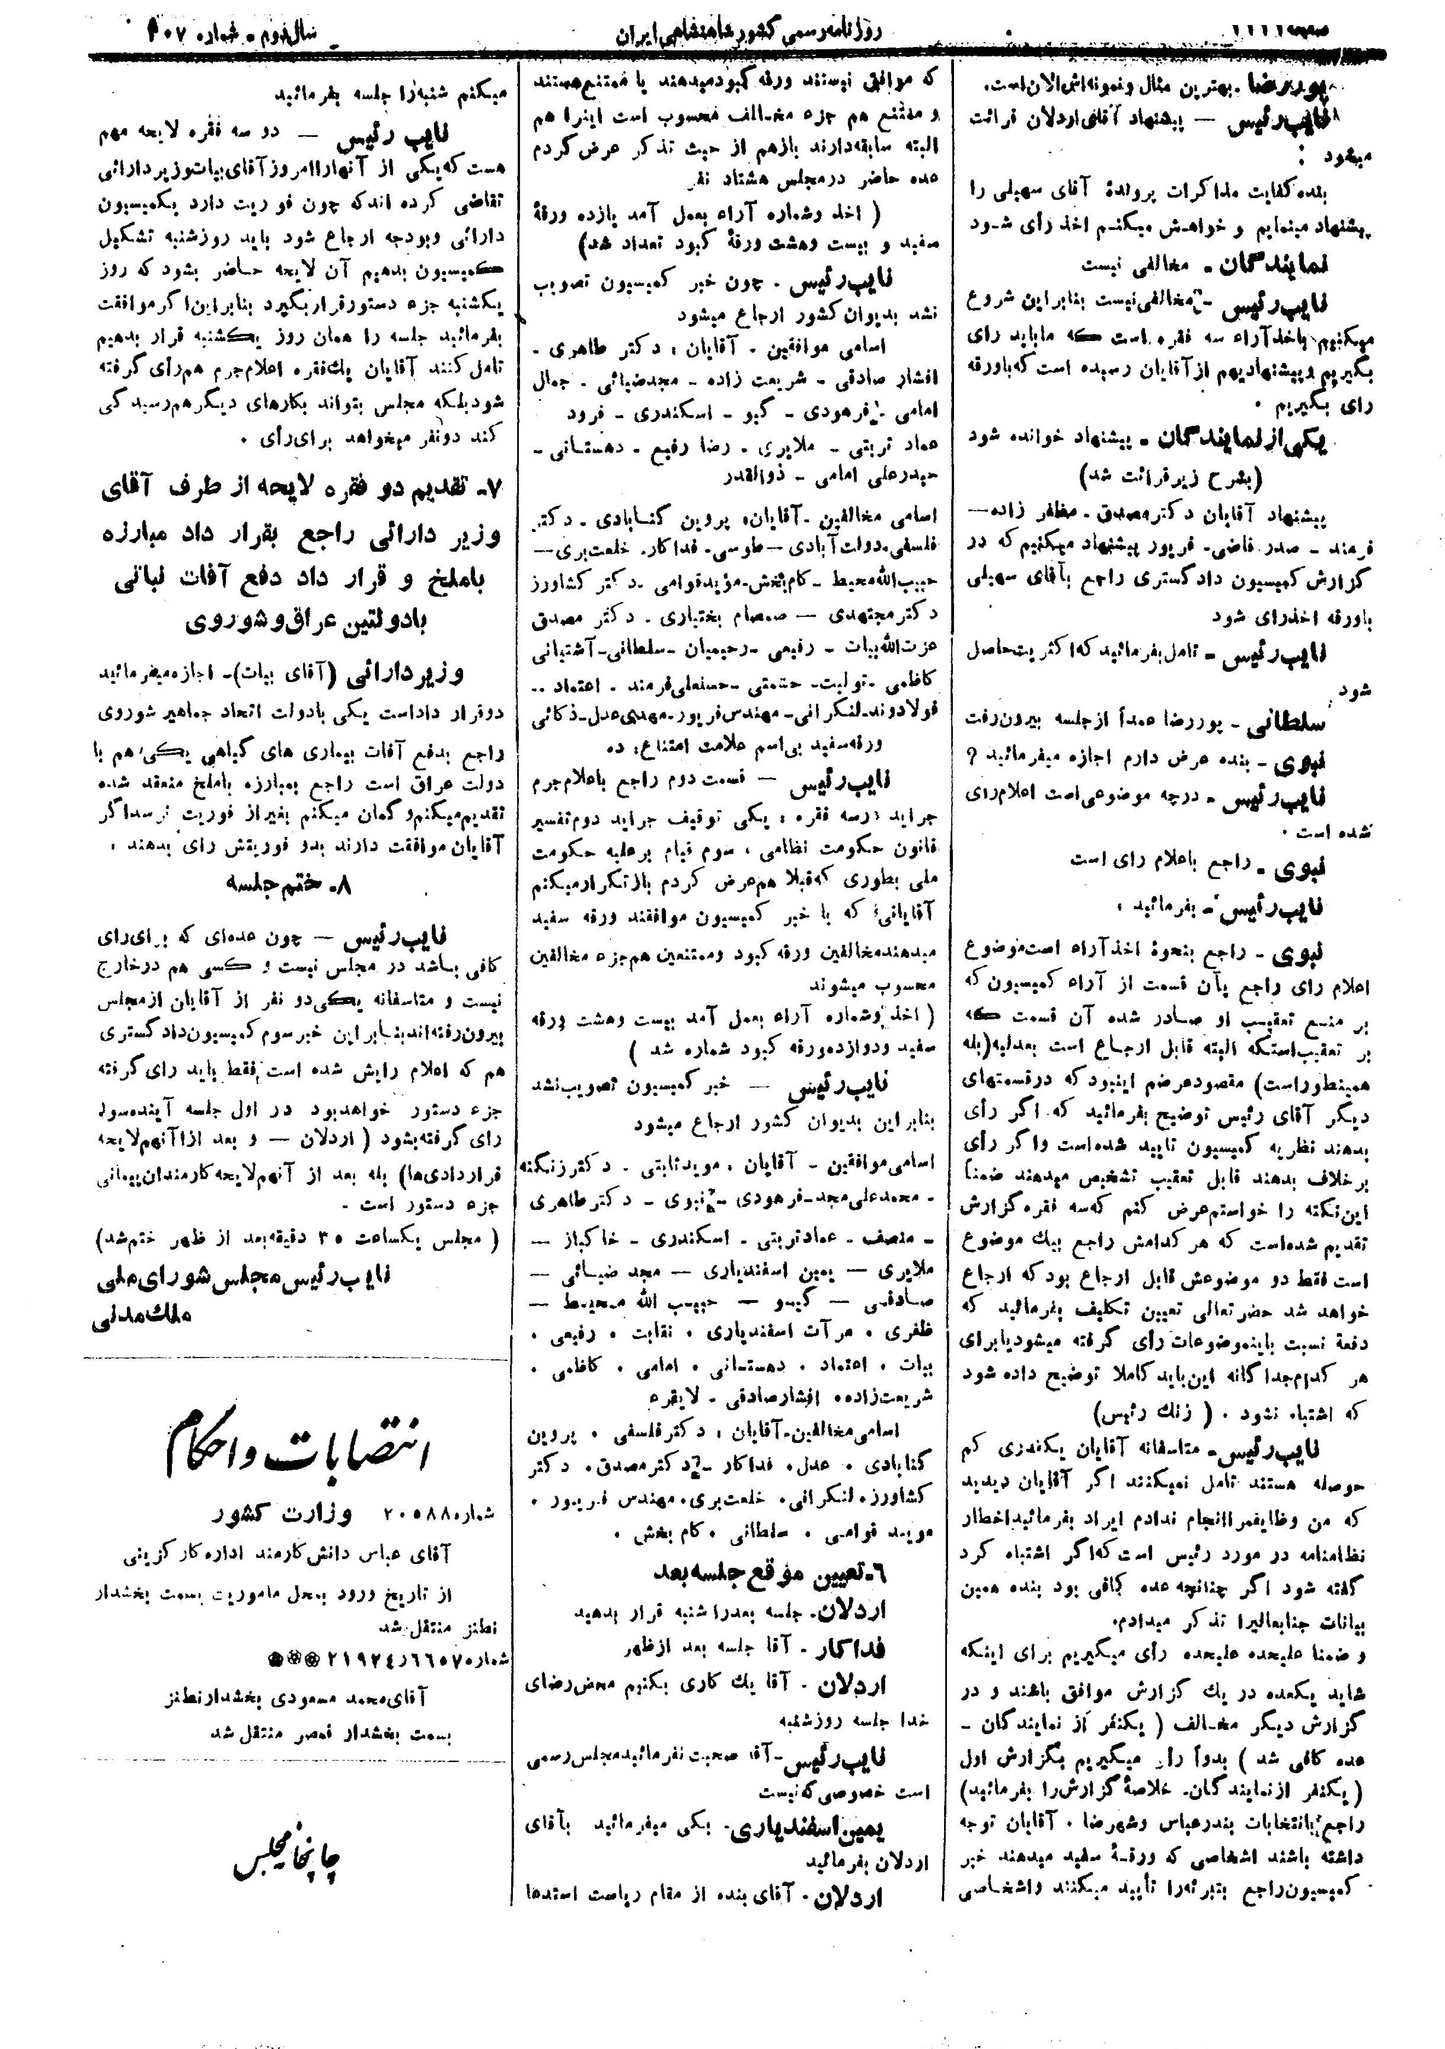 روزنامه رسمی کشور شاهنشاهی ایران
سال دوم - شماره
پوررضا - بهترین مثال و نمونه‌اش الان است.
نایب رئیس — پیشنهاد آقای اردلان قرائت
میشود :
بنده کفایت مذاکرات پروندهٔ آقای سهیلی را
پیشنهاد مینمایم و خواهش میکنم اخذ رأی شود
نمایندگان - مخالفی نیست
نایب رئیس - مخالفی نیست بنابراین شروع
میکنیم باخذ آراء سه فقره است که ما باید رای
بگیریم و پیشنهادیهم از آقایان رسیده است که باورقه
رای بگیریم .
یکی از نمایندگان - پیشنهاد خوانده شود
(بشرح زیر قرائت شد)
پیشنهاد آقایان دکتر مصدق - مظفر زاده —
فرمند - صدر قاضی - فریور پیشنهاد میکنیم که در
گزارش کمیسیون دادگستری راجع بآقای سهیلی
باورقه اخذرای شود
نایب رئیس - تامل بفرمائید که اکثریت حاصل
شود
سلطانی - پوررضا عمداً از جلسه بیرون رفت
نبوی - بنده عرض دارم اجازه میفرمائید ?
نایب رئیس - درچه موضوعی است اعلام رای
شده است .
نبوی - راجع باعلام رای است
نایب رئیس - بفرمائید .
نبوی - راجع بنحوهٔ اخذ آراء است موضوع
اعلام رای راجع بآن قسمت از آراء کمیسیون که
بر منع تعقیب او صادر شده آن قسمت که
بر تعقیب استکه البته قابل ارجاع است بعدلیه (بله
همینطور است) مقصود عرضم اینبود که در قسمتهای
دیگر آقای رئیس توضیح بفرمائید که اگر رأی
بدهند نظریه کمیسیون تایید شده‌است و اگر رأی
برخلاف بدهند قابل تعقیب تشخیص میدهند ضمناً
این نکته را خواستم عرض کنم که سه فقره گزارش
تقدیم شده‌است که هر کدامش راجع بیك موضوع
است فقط دو موضوعش قابل ارجاع بود که ارجاع
خواهد شد حضرتعالی تعیین تکلیف بفرمائید که
دفعة نسبت باینموضوعات رأی گرفته میشود یا برای
هر کدام جداگانه این باید کاملا توضیح داده شود
که اشتباه نشود . ( زنك رئیس)
نایب رئیس - متاسفانه آقایان یکقدری کم
حوصله هستند تامل نمیکنند اگر آقایان دیدید
که من وظایفم را انجام ندادم ایراد بفرمائید اخطار
نظامنامه در مورد رئیس است که اگر اشتباه کرد
گفته شود اگر چنانچه عده کافی بود بنده همین
بیانات جنابعالیرا تذکر میدادم.
و ضمنا علیحده علیحده رأی میگیریم برای اینکه
شاید یکعده در یك گزارش موافق باشند و در
گزارش دیگر مخالف ( یکنفر از نمایندگان -
عده کافی شد ) بدواً رأی میگیریم بگزارش اول
(یکنفر از نمایندگان - خلاصهٔ گزارش را بفرمائید)
راجع بانتخابات بندرعباس و شهرضا . آقایان توجه
داشته باشند اشخاصی که ورقهٔ سفید میدهند خبر
کمیسیون راجع بتبرئه را تأیید میکنند و اشخاصی
که موافق نیستند ورقه کبود میدهند یا ممتنع هستند
و ممتنع هم جزء مخالف محسوب است اینرا هم
البته سابقه دارند بازهم از حیث تذکر عرض کردم
عده حاضر در مجلس هشتاد نفر
( اخذ و شماره آراء بعمل آمد یازده ورقهٔ
سفید و بیست وهشت ورقهٔ کبود تعداد شد)
نایب رئیس - چون خبر کمیسیون تصویب
نشد بدیوان کشور ارجاع میشود
اسامی موافقین - آقایان : دکتر طاهری -
افشار صادقی - شریعت زاده - مجد ضیائی - جمال
امامی - فرهودی - گیو - اسکندری - فرود
عماد تربتی - ملایری - رضا رفیع - دهستانی -
حیدرعلی امامی - ذوالقدر
اسامی مخالفین - آقایان: پروین گنابادی - دکتر
فلسفی - دولت آبادی - طوسی - فداکار - خلعت‌بری —
حبیب الله محیط - کام بخش - مؤید قوامی - دکتر کشاورز
دکتر مجتهدی — صمصام بختیاری - دکتر مصدق
عزت الله بیات - رفیعی - رحیمیان - سلطانی - آشتیانی
کاظمی - تولیت - حشمتی - حسنعلی فرمند - اعتماد ..
فولادوند - لنکرانی - مهندس فریور - مهدی عدل - ذکائی
ورقه سفید بی اسم علامت امتناع : ده
نایب رئیس — قسمت دوم راجع باعلام جرم
جراید در سه فقره : یکی توقیف جراید دوم تفسیر
قانون حکومت نظامی ، سوم قیام بر علیه حکومت
ملی بطوری که قبلا هم عرض کردم باز تکرار میکنم
آقایانی که با خبر کمیسیون موافقند ورقه سفید
میدهند مخالفین ورقه کبود و ممتنعین هم جزء مخالفین
محسوب میشوند
( اخذ و شماره آراء بعمل آمد بیست وهشت ورقه
سفید و دوازده ورقه کبود شماره شد )
نایب رئیس — خبر کمیسیون تصویب نشد
بنابراین بدیوان کشور ارجاع میشود
اسامی موافقین - آقایان . مویدثابتی - دکتر زنگنه
- محمد علی مجد - فرهودی - نبوی - دکتر طاهری
- منصف - عماد تربتی - اسکندری - خاکباز —
ملایری — یمین اسفندیاری — مجد ضیائی —
صادقی — گیو — حبیب الله محیط —
ظفری . مرآت اسفندیاری . نقابت . رفیعی .
بیات . اعتماد . دهستانی . امامی . کاظمی .
شریعت زاده . افشار صادقی - لایقره
اسامی مخالفین - آقایان : دکتر فلسفی . پروین
گنابادی . عدل . فداکار - دکتر مصدق . دکتر
کشاورز . لنکرانی . خلعت‌بری . مهندس فریور .
موید قوامی . سلطانی . کام بخش .
٦- تعیین موقع جلسه بعد
اردلان - جلسه بعد را شنبه قرار بدهید
فداکار - آقا جلسه بعد از ظهر
اردلان - آقا یك کاری بکنیم محض رضای
خدا جلسه روزشنبه
نایب رئیس - آقا صحبت نفرمائید مجلس رسمی
است خصوصی که نیست
یمین اسفندیاری - یکی میفرمائید بآقای
اردلان بفرمائید
اردلان - آقای بنده از مقام ریاست استدعا
میکنم شنبه را جلسه بفرمائید
نایب رئیس — دو سه فقره لایحه مهم
هست که یکی از آنهارا امروز آقای بیات وزیر دارائی
تقاضی کرده اند که چون فوریت دارد بکمیسیون
دارائی وبودجه ارجاع شود باید روزشنبه تشکیل
کمیسیون بدهیم آن لایحه حاضر بشود که روز
یکشنبه جزء دستور قرار بگیرد بنابراین اگر موافقت
بفرمائید جلسه را همان روز یکشنبه قرار بدهیم
تامل کنند آقایان یك فقره اعلام جرم هم رأی گرفته
شود بلکه مجلس بتواند بکارهای دیگر هم رسیدگی
کند دونفر میخواهد برای رأی .
٧- تقدیم دو فقره لایحه از طرف آقای
وزیر دارائی راجع بقرار داد مبارزه
باملخ و قرار داد دفع آفات نباتی
بادولتین عراق و شوروی
وزیر دارائی (آقای بیات) - اجازه میفرمائید
دو قرار داد است یکی بادولت اتحاد جماهیر شوروی
راجع بدفع آفات بیماری های گیاهی یکی هم با
دولت عراق است راجع بمبارزه باملخ منعقد شده
تقدیم میکنم و گمان میکنم بغیر از فوریت نرسد اگر
آقایان موافقت دارند بدو فوریتش رای بدهند .
٨- ختم جلسه
نایب رئیس — چون عده‌ای که برای رای
کافی باشد در مجلس نیست و کسی هم در خارج
نیست و متاسفانه یکی دو نفر از آقایان از مجلس
بیرون رفته اند بنابراین خبر سوم کمیسیون دادگستری
هم که اعلام رایش شده است فقط باید رای گرفته
جزء دستور خواهد بود در اول جلسه آینده
رای گرفته بشود ( اردلان — و بعد از آنهم لایحه
قراردادی‌ها) بله بعد از آنهم لایحه کارمندان پیمانی
جزء دستور است .
( مجلس یکساعت ٣٥ دقیقه بعد از ظهر ختم شد)
نایب رئیس مجلس شورای ملی
ملك مدنی
انتصابات و احکام
شماره ٢٠٥٨٨ وزارت کشور
آقای عباس دانش کارمند اداره کارگزینی
از تاریخ ورود بمحل ماموریت بسمت بخشدار
نطنز منتقل شد
شماره ٢١٩٢٤ر٦٦٥٧
آقای محمد مسعودی بخشدار نطنز
بسمت بخشدار قمصر منتقل شد
چاپخانه مجلس